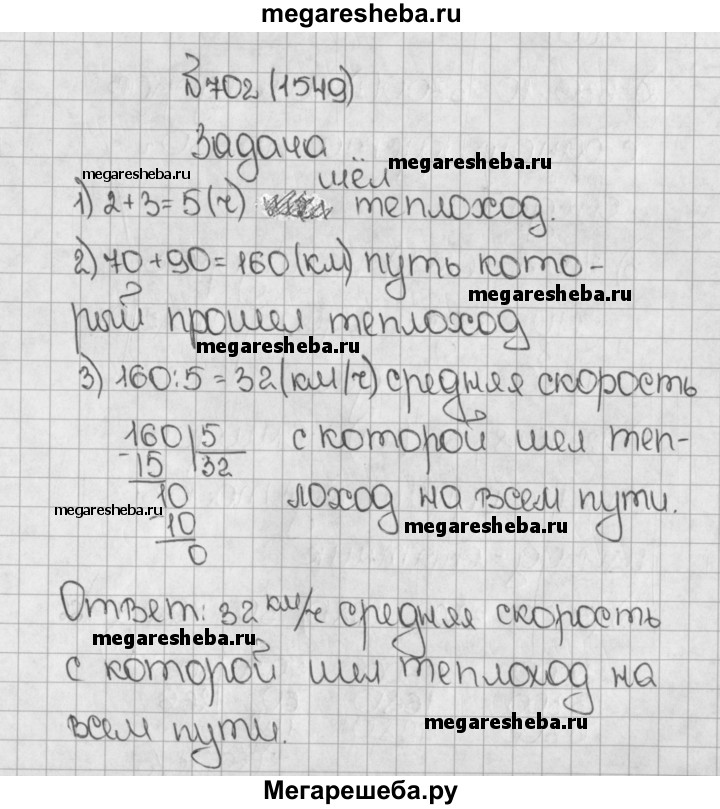 megaresheba.ru
№702 (1549)
Задача
megaresheba.ru
megaresheba.ru
шёл
1) 2+3=5(ч) теплоход.
2) 70+90=160(км) путь кото-
megaresheba.ru
рый прошел теплоход
megaresheba.ru
3) 160:5=32(км/ч) средняя скорость
160 5 с которой шел теп-
-15 32
10 лоход на всем пути.
megaresheba.ru
megaresheba.ru
-10
0
Ответ: 32 км/ч средняя скорость
megaresheba.ru
с которой шел теплоход на
всем пути.
megaresheba.ru
Мегарешеба.ру